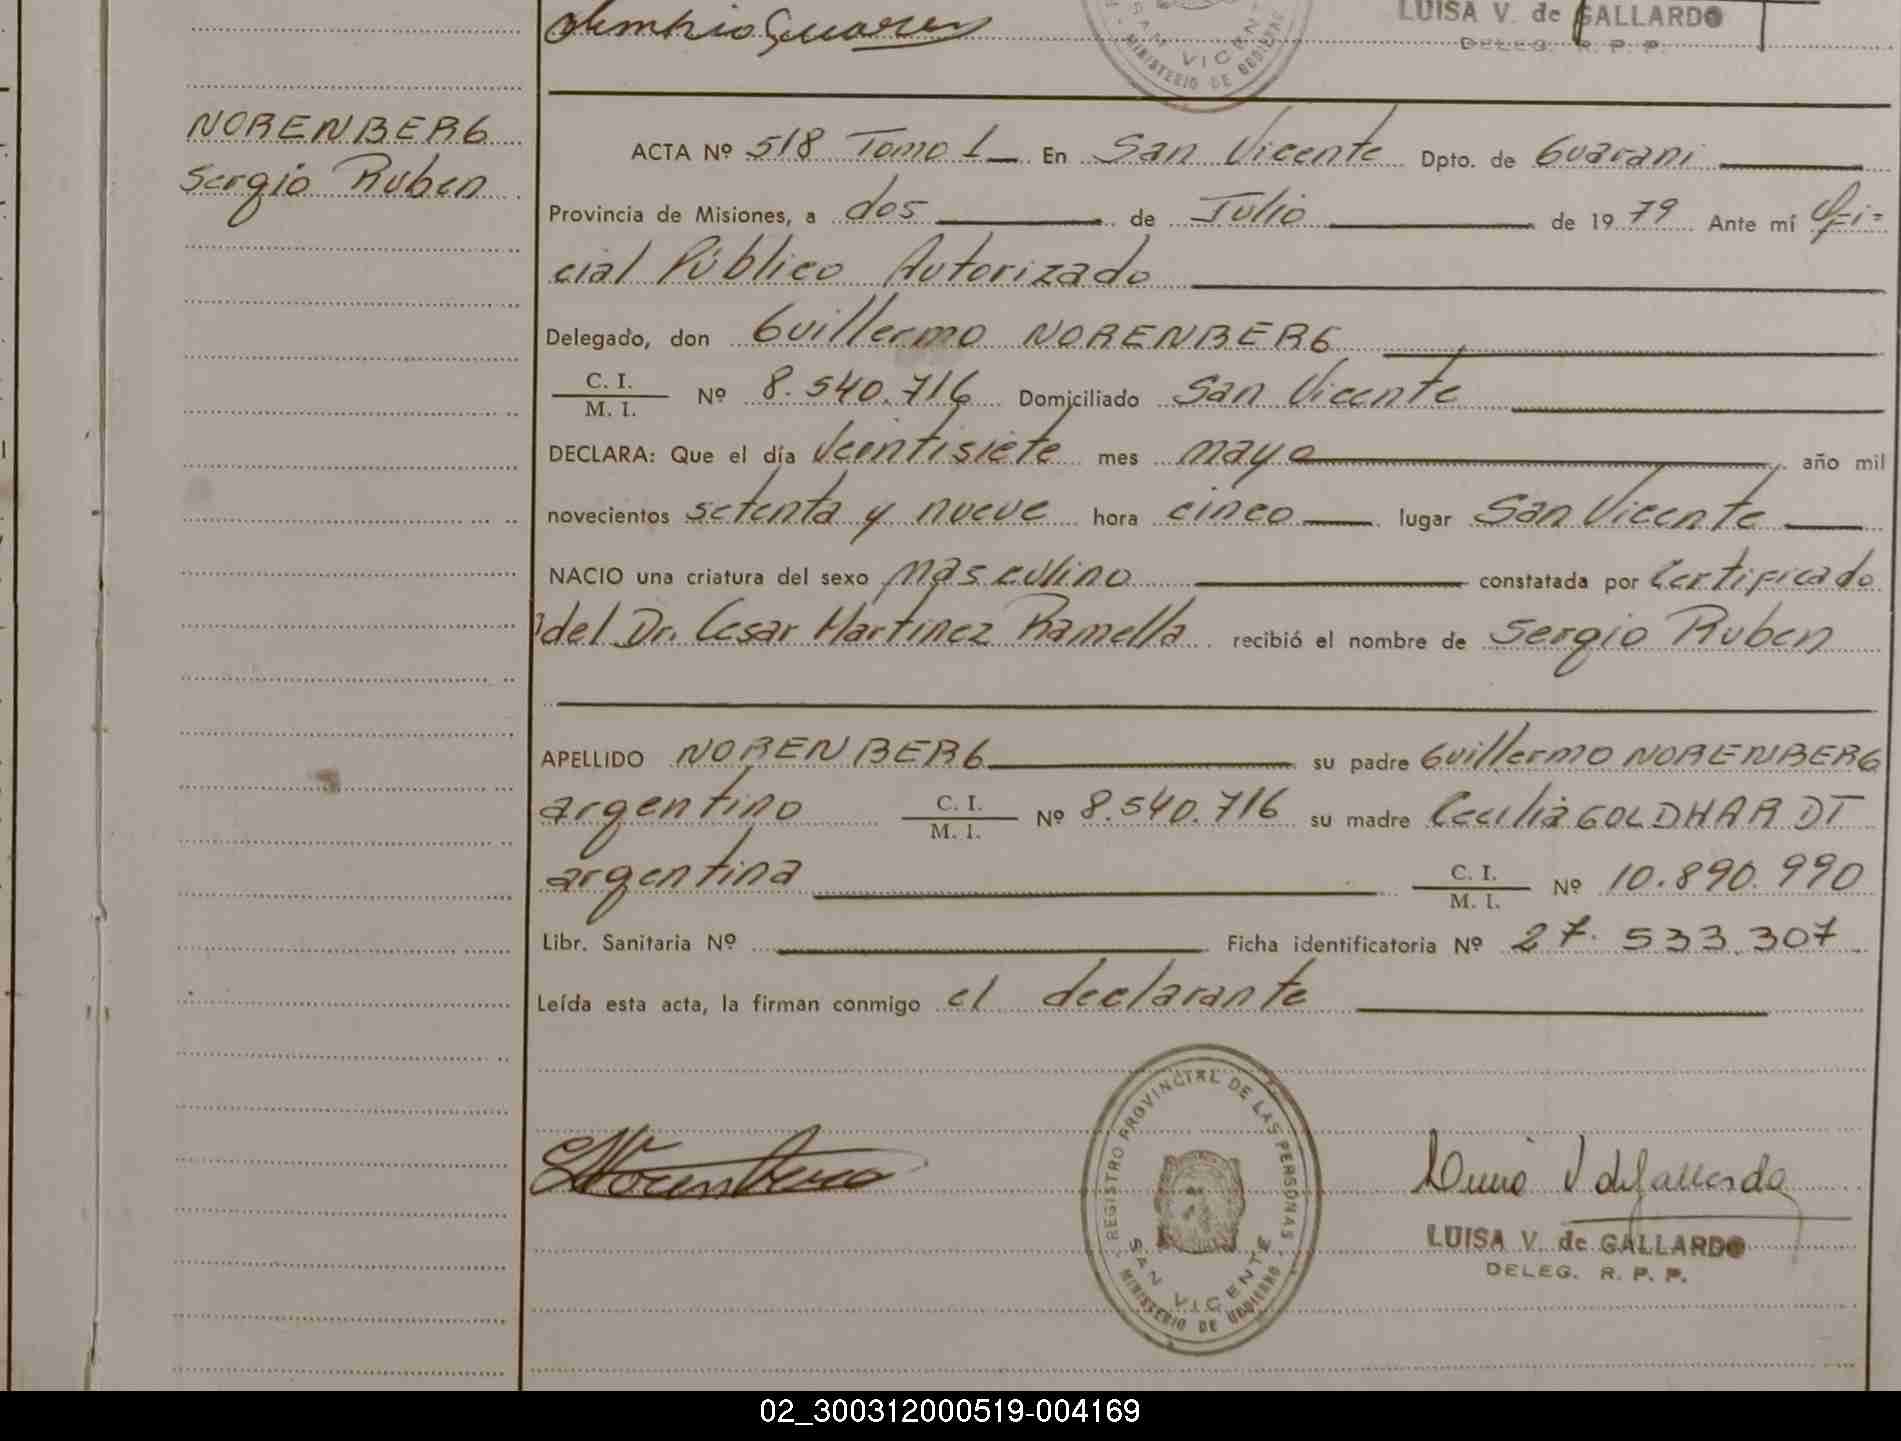 LUISA V. de GALLARDO
DELEG. R. P. P.
SAN VICENTE
MINISTERIO DE GOBIERNO
NORENBERG
Sergio Ruben
ACTA Nº 518 Tomo 1 En San Vicente Dpto. de Guarani
Provincia de Misiones, a dos de Julio de 1979 Ante mí Ofi=
cial Público Autorizado
Delegado, don Guillermo NORENBERG
C. I.
M. I. Nº 8.540.716 Domiciliado San Vicente
DECLARA: Que el día Veintisiete mes mayo año mil
novecientos setenta y nueve hora cinco lugar San Vicente
NACIO una criatura del sexo masculino constatada por Certificado
del Dr. Cesar Martinez Ramella recibió el nombre de Sergio Ruben
APELLIDO NORENBERG su padre Guillermo NORENBERG
argentino C. I.
M. I. Nº 8.540.716 su madre Cecilia GOLDHARDT
argentina C. I.
M. I. Nº 10.890.990
Libr. Sanitaria Nº Ficha identificatoria Nº 27.533.307
Leída esta acta, la firman conmigo el declarante
REGISTRO PROVINCIAL DE LAS PERSONAS
SAN VICENTE
MINISTERIO DE GOBIERNO
LUISA V. de GALLARDO
DELEG. R. P. P.
02_300312000519-004169